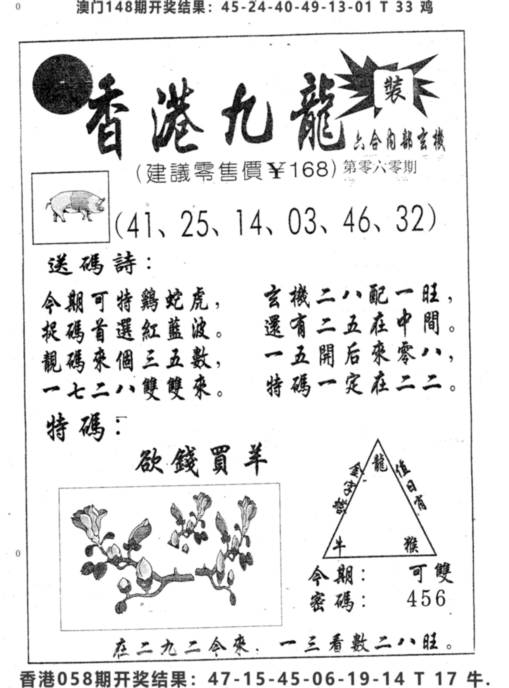 澳门148期开奖结果：45-24-40-49-13-01 T 33 鸡
香港九龍
裝
六合內部玄機
(建議零售價￥168) 第零六零期
(41、25、14、03、46、32)
送碼詩：
今期可特鷄蛇虎，
捉碼首選紅藍波。
靚碼來個三五數，
一七二八雙雙來。
玄機二八配一旺，
還有二五在中間。
一五開后來零八，
特碼一定在二二。
特碼：
欲錢買羊
龍
值日肖
牛
猴
今期： 可雙
密碼： 456
在二九二今來．一三看數二八旺。
香港058期开奖结果：47-15-45-06-19-14 T 17 牛.